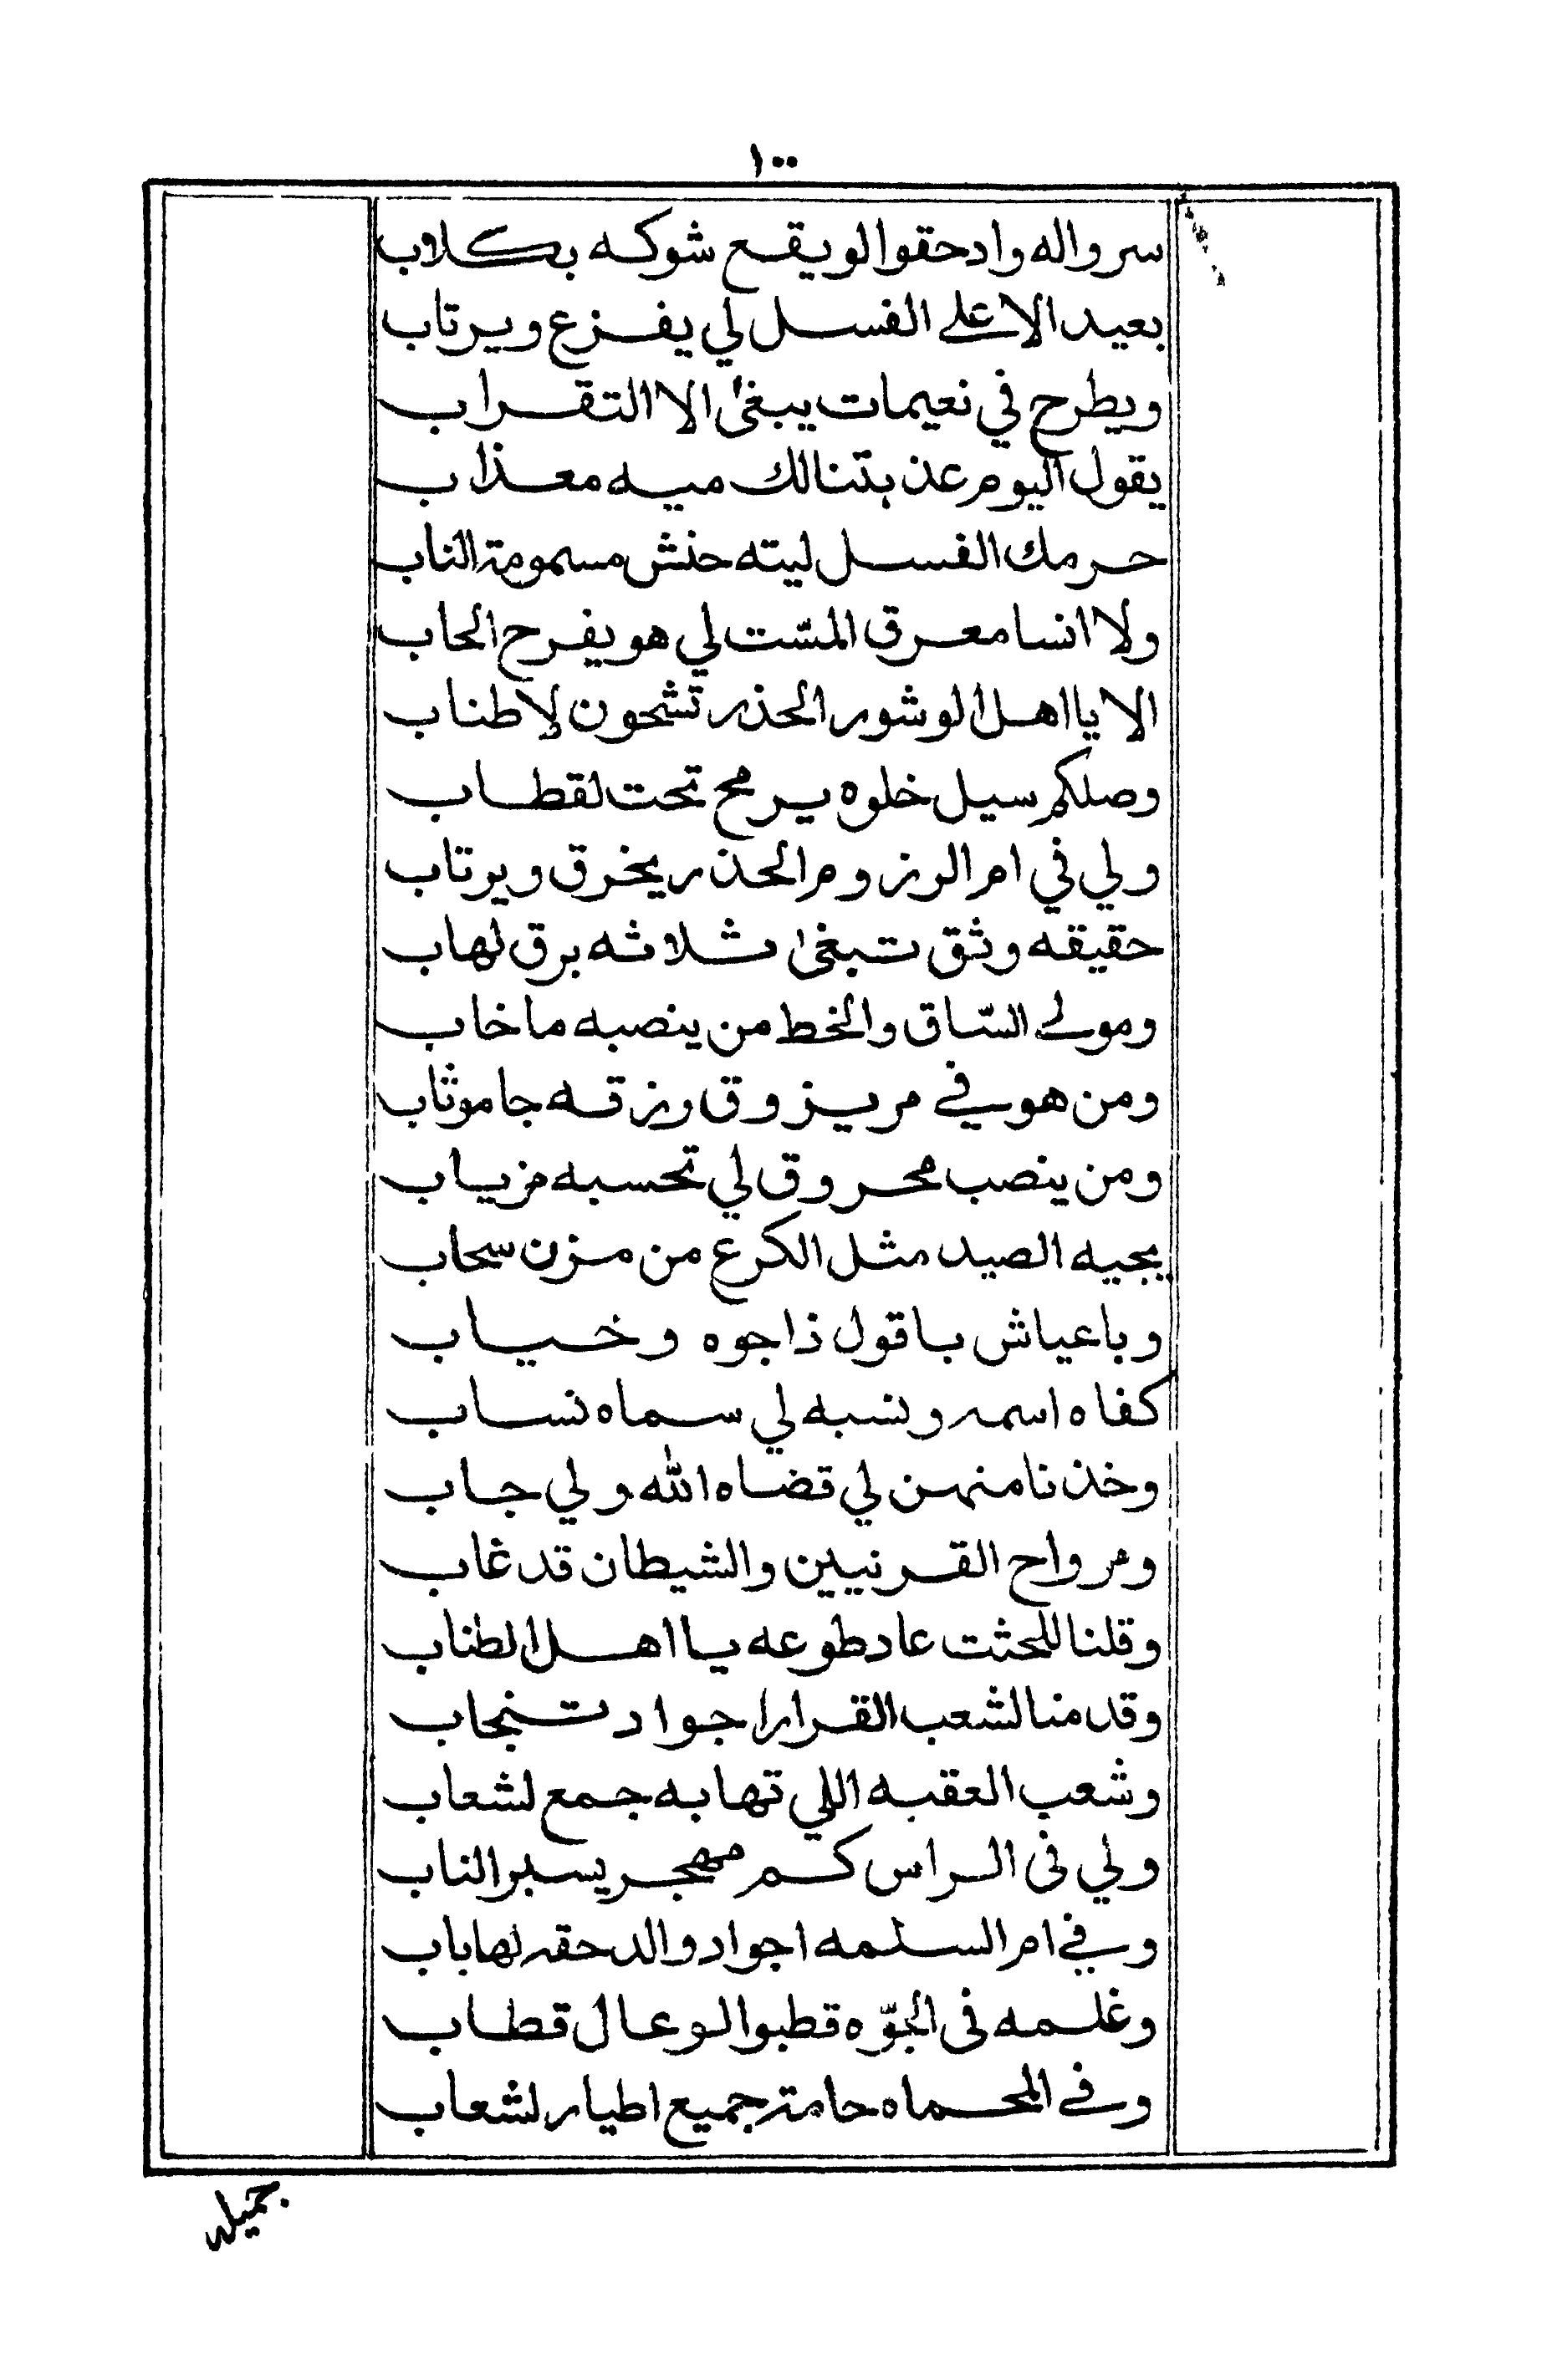 ١٠٠
سرواله وادحقوا لو يقع شوكه بكلاب
بعيد الا على الفسل لي يفزع ويرتاب
ويطرح في نعيمات يبغى الا التقراب
يقول اليوم عذبتنا لك ميه معذاب
حرمك الفسل ليته حنش مسمومة الناب
ولا انسا معرق المسّت لي هو يفرح الحاب
الا يا اهل الوشور الحذر تشحون لاطناب
وصلكم سيل خلوه يرمح تحت لقطاب
ولي في ام الرزوم الحذر يخرق ويرتاب
حقيقه وثق تبغى ثلاثه برق لهاب
ومولى السّاق والخط من ينصبه ما خاب
ومن هو في مريزوق رزقه جا موثاب
ومن ينصب محروق لي تحسبه مزياب
يجيه الصيد مثل الكرع من مزن سحاب
وباعياش باقول ذا جوه وخياب
كفاه اسمه ونسبه لي سماه نساب
وخذنا منهن لي قضاه الله ولي جاب
ومرواح القرنيين والشيطان قد غاب
وقلنا للحثث عاد طوعه يا اهل الطناب
وقد منا لشعب القرارا جواد تنجاب
وشعب العقبه اللي تهابه جمع لشعاب
ولي في الراس كم مهجر يسبر الناب
وفي ام السلمه اجواد والدحقه لها باب
وغلمه في الجوّه قطبوا لوعال قطاب
وفي المحماه حامة جميع اطيار لشعاب
جميله